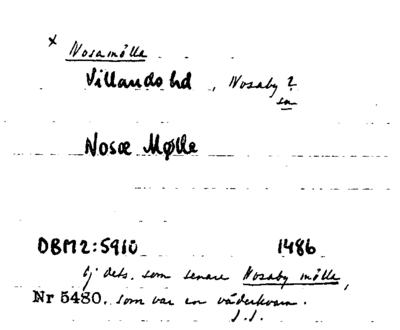 x Nosamölla
Villands hd, Nosaby?
sn
Nosæ Mølle
DBM 2:5910 1486
Ej dets. som senare Nosaby mölla,
Nr 5480. som var en väderkvarn.
J.J.